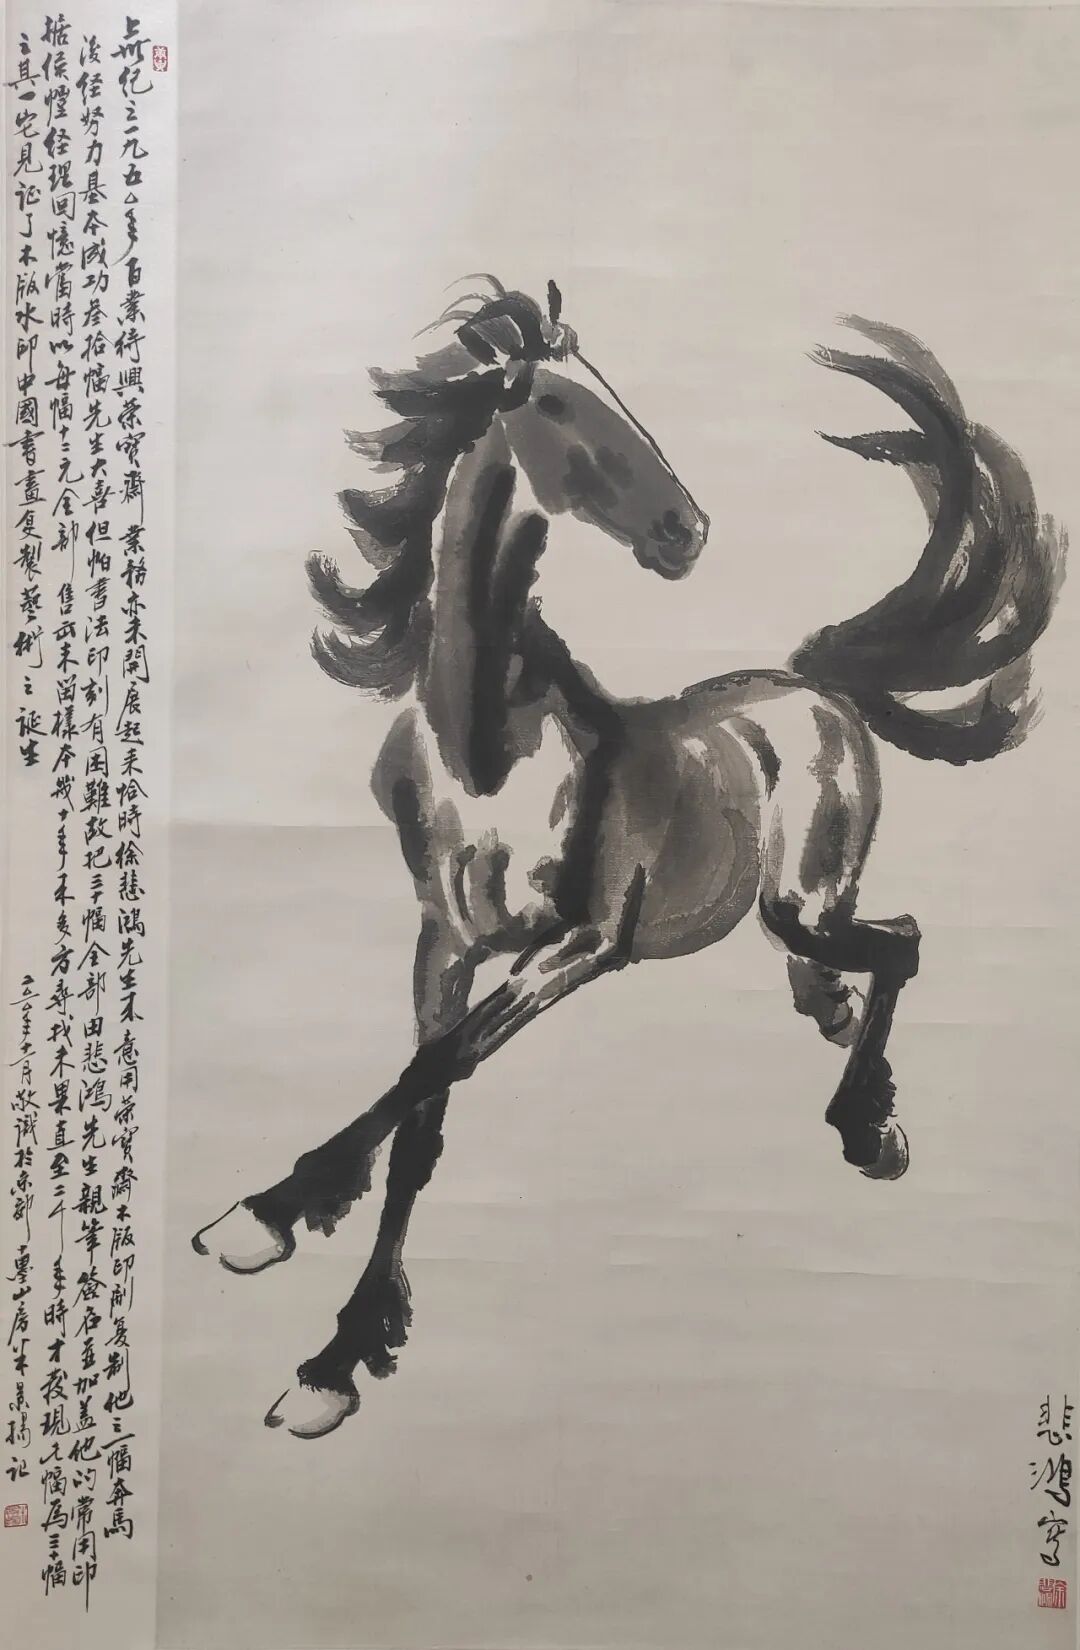 悲鴻寫
上世紀之一九五〇年百業待興榮寶齋業務亦未開展起來恰時徐悲鴻先生來意用榮寶齋木版印刷复制他之一幅奔馬
後经努力基本成功叁拾幅先生大喜但怕書法印刻有困難故把三十幅全部由悲鴻先生親筆簽名並加盖他的常用印
据侯愷经理回憶當時以每幅十二元全部售出未留樣本幾十年來多方尋找未果直至二千年時才發現此幅為三十幅
之其一它見证了木版水印中國書畫复製藝術之誕生
年十一月敬識於京郊十墨山房米景揚記